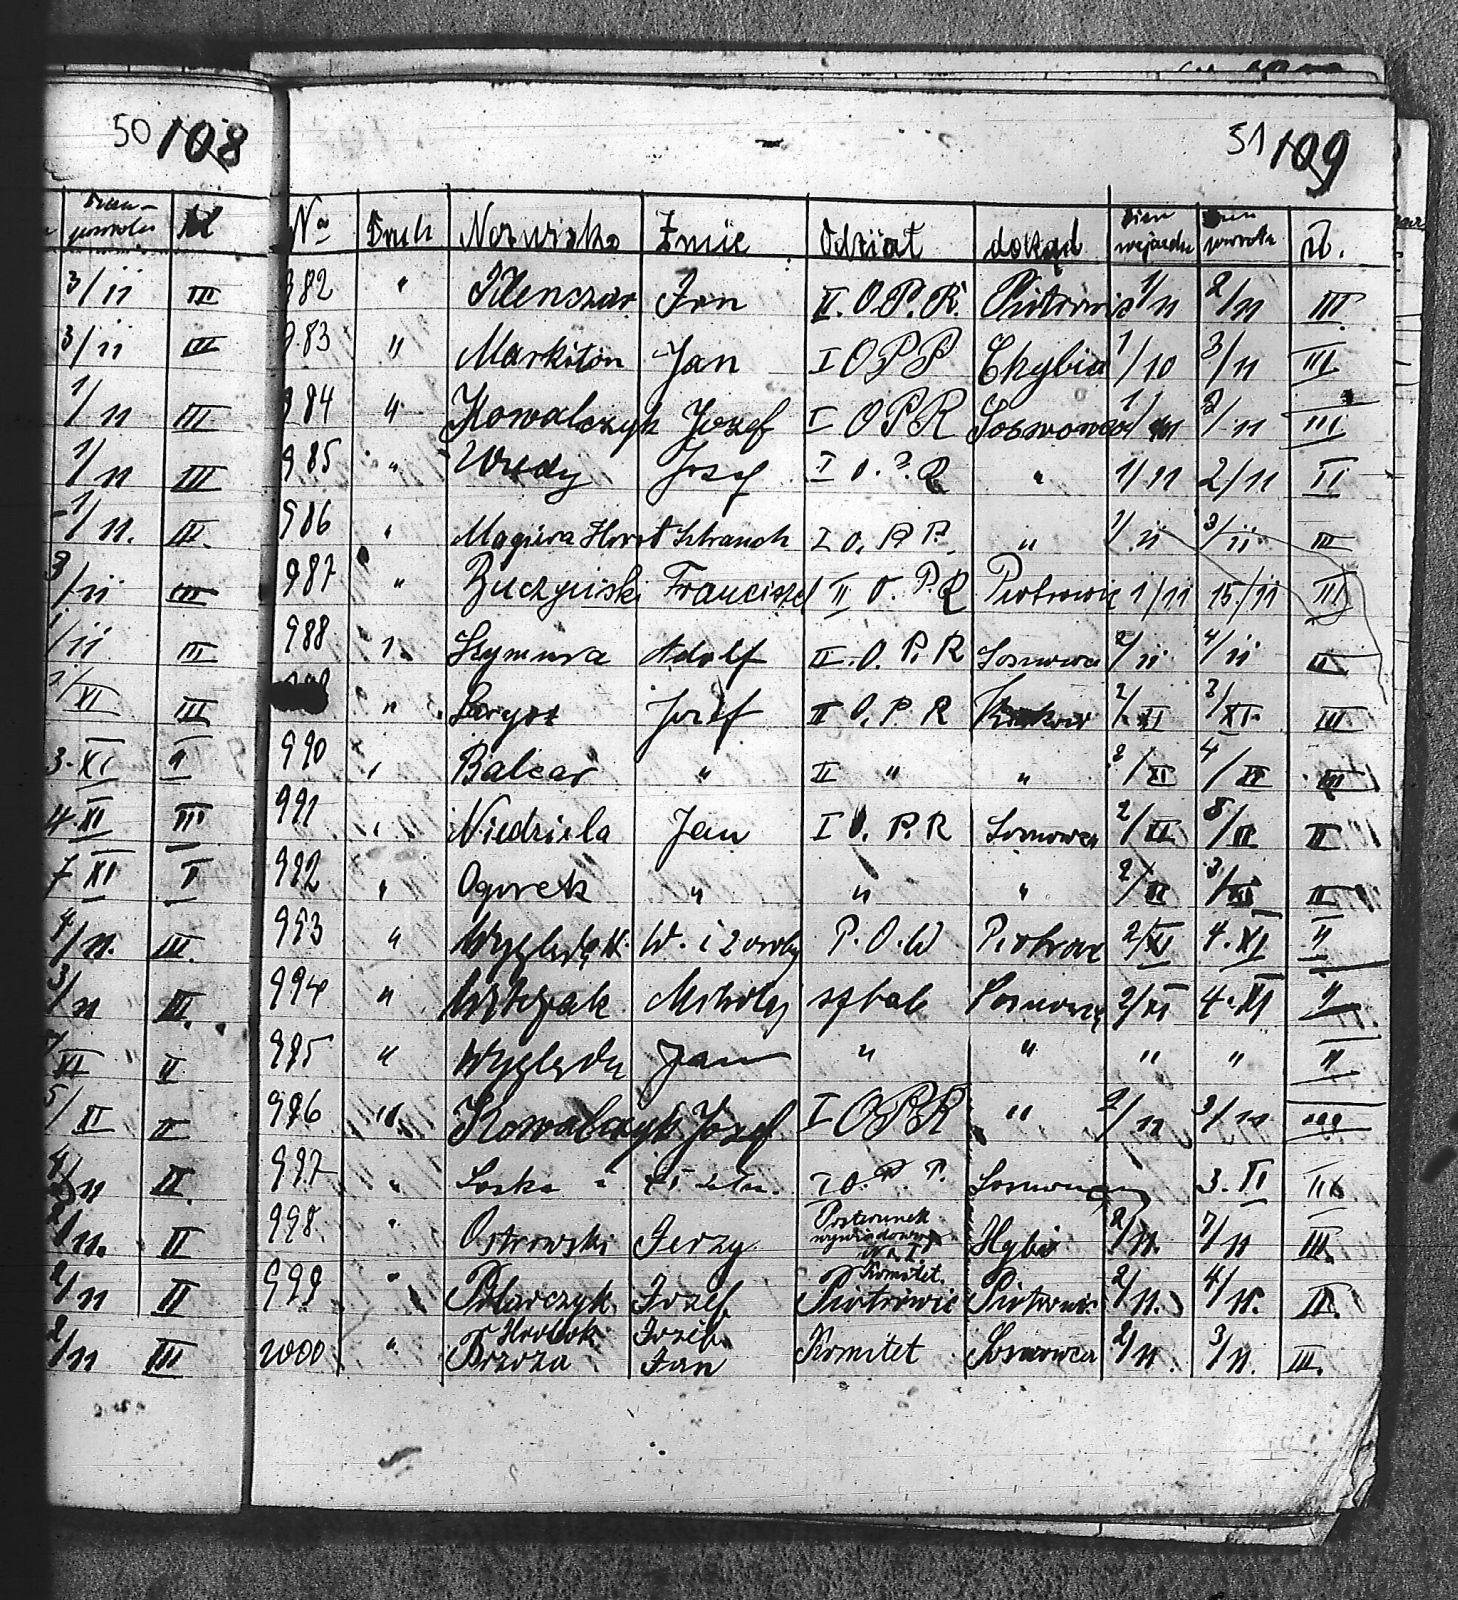 50 108
51 109
3/11 III
3/11 III
1/11 III
1/11 III
1/11. III.
3/11 III
1/11 III
XI III
3.XI II
4.XI III
7 XI II
4/11. III.
3/11 III.
XI II
5/XI II
4/11 II.
2/11. II
2/11 II
2/11 III
No Druk Nazwisko Imie Odział dokąd dzien wyjazdu dzien powrotu kl.
982 " Klenczar Jan II. O.P.R. Piotrowic 1/11 2/11 III.
983 " Markiton Jan I O P P Chybia 1/10 3/11 III.
984 " Kowalczyk Jozef I O P R Sosnowca 1/11 2/11 III.
985 " Jozef I O.P.R " 1/11 2/11 II
986 " Magiera Horst Schrauch I O.P.P. " 1/11 3/11 III
987 " Zuczyński Franciszek II O.P.R Piotrowic 1/11 15/11 III
988 " Szymura Adolf II.O.P.R Sosnowca 2/11 4/11 II
" Jozef II O.P.R 2/XI 3/XI. III.
990 " Balcar " II " " 2/XI 4/XI III
991 " Niedziela Jan I O.P.R Sosnowca 2/XI 8/XI II
992 " Ogorek " " " 2/XI 3/XI II
993 " W. i 2 osoby P.O.W Piotrow 2/XI 4.XI II
994 " Mikołaj sztab 2/XI 4.XI II
995 " Jan " " " " II
996 " Kowalczyk Jozef I OPR " 2/11 3/11 III
997 " Soska I O.P.P. 3.XI III.
998. " Ostrowski Jerzy Posterunek wywiadowczy 2/11. 7/11 III.
999 " Polarczyk Jozef Komitet. Piotrowic Piotrowic 2/11. 4/11. II.
1000 " Hrobok Jozef
Brzoza Jan Komitet Sosnowca 2/11. 3/11. III.